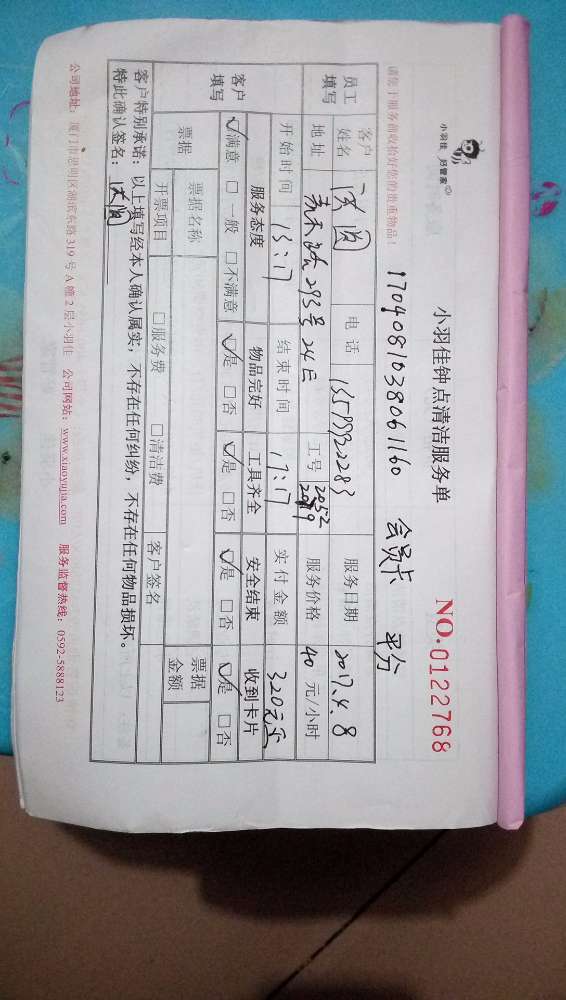 小羽佳 好管家
小羽佳钟点清洁服务单
NO.0122768
请您于服务前收拾好您的贵重物品!
1704081038061160 会员卡 平分
员工填写 客户姓名 电话 服务日期 2017.4.8
地址 293号 工号 2052 2019 服务价格 40 元/小时
开始时间 13:17 结束时间 17:17 实付金额 320元
客户填写 服务态度 物品完好 工具齐全 安全结束 收到卡片
☑满意 □一般 □不满意 ☑是 □否 ☑是 □否 ☑是 □否 ☑是 □否
票据 票据名称 □服务费 □清洁费 客户签名 票据金额
开票项目
客户特别承诺:以上填写经本人确认属实,不存在任何纠纷,不存在任何物品损坏。
特此确认签名:
公司地址:厦门市思明区湖滨东路319号A幢2层小羽佳 公司网站:www.xiaoyujia.com 服务监督热线:0592-5888123